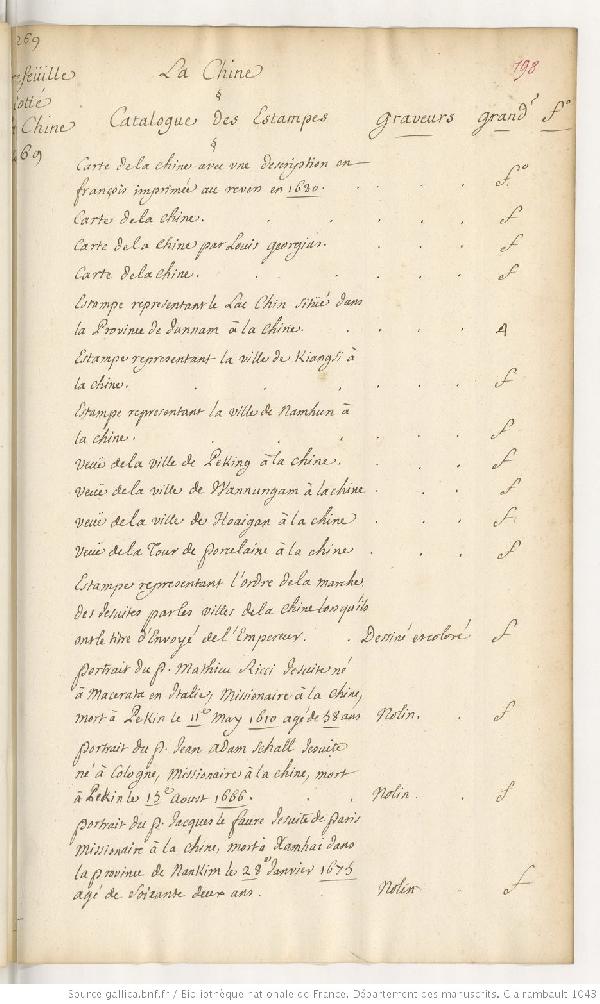 269
La Chine
198
feüille
cotté
Chine
269
§
Catalogue Des Estampes
graveurs
grandr
fo
§
Carte de la Chine avec vne description en
françois imprimée au revers en 1630.
fo
Carte de la Chine.
f
Carte de la Chine par Louis georgius.
f
Carte de la Chine.
f
Estampe representant le Lac Chin sitüé dans
la Province de Junnam à la Chine.
4
Estampe representant la ville de Kiangsi à
la Chine.
f
Estampe representant la ville de Namhun à
la Chine.
f
Veüe de la ville de Peking à la chine.
f
Veüe de la ville de Wannungam à la chine
f
veüe de la ville de Hoaigan à la chine
f
Veüe de la Tour de porcelaine à la chine
f
Estampe representant l'ordre de la marche
des Jesuites par les villes de la Chine lorsqu'ils
ont le titre d'Envoyé de l'Empereur.
Dessiné et coloré
f
portrait du p. Mathieu Ricci Jesuite né
à Macerata en Italie, Missionaire à la Chine,
mort à Pekin le 11e May 1610 agé de 58 ans
Nolin.
f
portrait du p. Jean Adam Schall Jesuite
né à Cologne, Missionaire à la chine, mort
à Pekin le 15e Aoust 1666.
Nolin.
f
portrait du p. Jacques le faure Jesuite de paris
Missionaire à la Chine, mort à Xamhai dans
la province de Nankim le 28e Janvier 1675
agé de Soixante deux ans.
Nolin
f
Source gallica.bnf.fr / Bibliothèque nationale de France. Département des manuscrits. Clairambault 1043